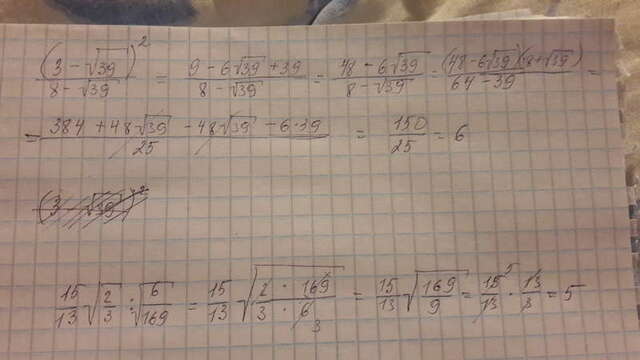 (3 - √39)² / (8 - √39) = (9 - 6√39 + 39) / (8 - √39) = (48 - 6√39) / (8 - √39) = (48 - 6√39)(8 + √39) / (64 - 39) =
= (384 + 48√39 - 48√39 - 6·39) / 25 = 150/25 = 6
(3 - √39)²
15/13 √(2/3) : √(6/169) = 15/13 √(2 · 169 / (3 · 6 3)) = 15/13 √(169/9) = 15 5/13 · 13/3 = 5